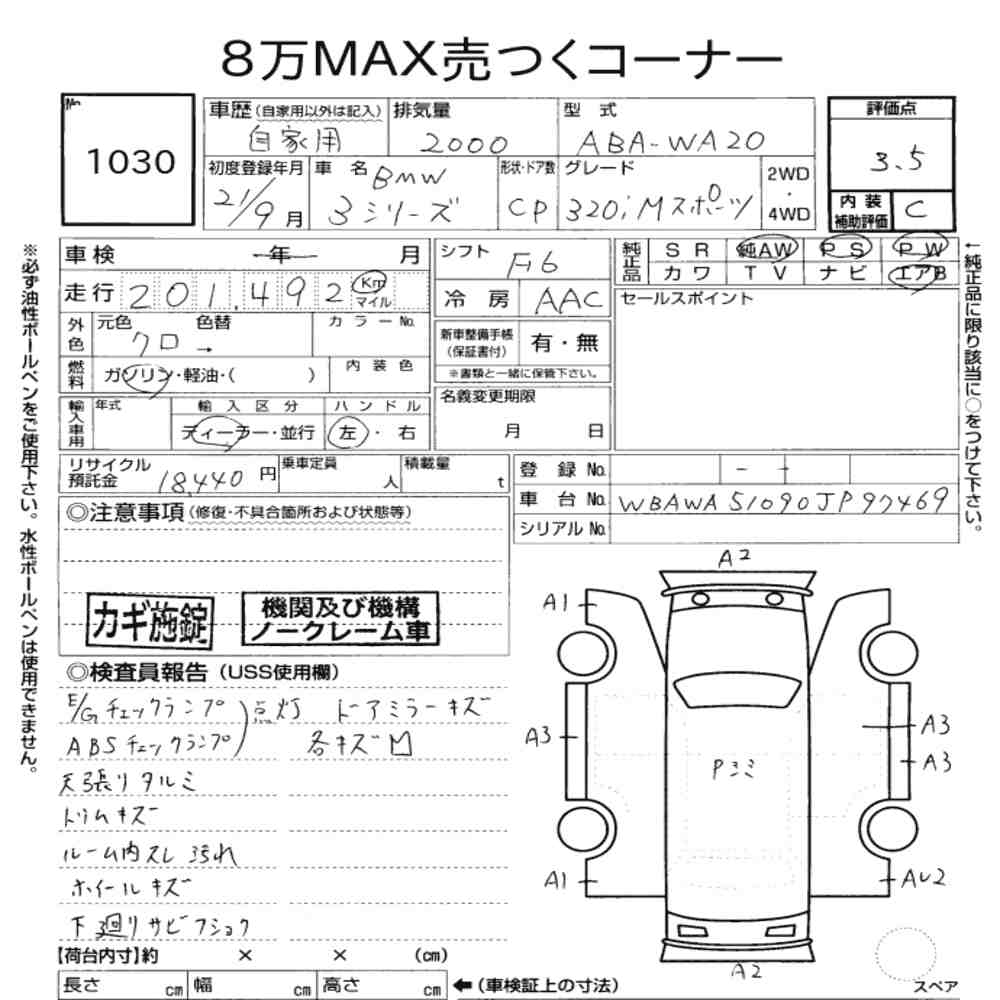 8万MAX売つくコーナー
No.
1030
車歴(自家用以外は記入)
自家用
排気量
2000
型式
ABA-WA20
評価点
3.5
初度登録年月
21/9月
車名
BMW
3シリーズ
形状・ドア数
CP
グレード
320i Mスポーツ
2WD
・
4WD
内装
補助評価
C
車検 年 月
走行 201,492 Km
マイル
外色
元色 色替 カラーNo.
クロ →
燃料
ガソリン・軽油・( )
内装色
輸入車用
年式
輸入区分
ディーラー・並行
ハンドル
左・右
シフト
F6
冷房 AAC
新車整備手帳
(保証書付)
有・無
※書類と一緒に保管下さい。
名義変更期限
月 日
純正品
SR 純AW PS PW
カワ TV ナビ エアB
セールスポイント
リサイクル
預託金
18,440円
乗車定員
人
積載量
t
登録No. - -
車台No. WBAWA51090JP97469
シリアルNo.
◎注意事項(修復・不具合箇所および状態等)
カギ施錠
機関及び機構
ノークレーム車
◎検査員報告(USS使用欄)
E/Gチェックランプ)点灯 ドアミラーキズ
ABSチェックランプ) 各キズ凹
天張りタルミ
トリムキズ
ルーム内スレ汚れ
ホイールキズ
下廻りサビフショク
【荷台内寸】約 × × (cm)
長さ cm 幅 cm 高さ cm
←(車検証上の寸法)
A2
A1
A3
A3
A3
Pミミ
A1
AU2
A2
スペア
※必ず油性ボールペンをご使用下さい。水性ボールペンは使用できません。
←純正品に限り該当に○をつけて下さい。